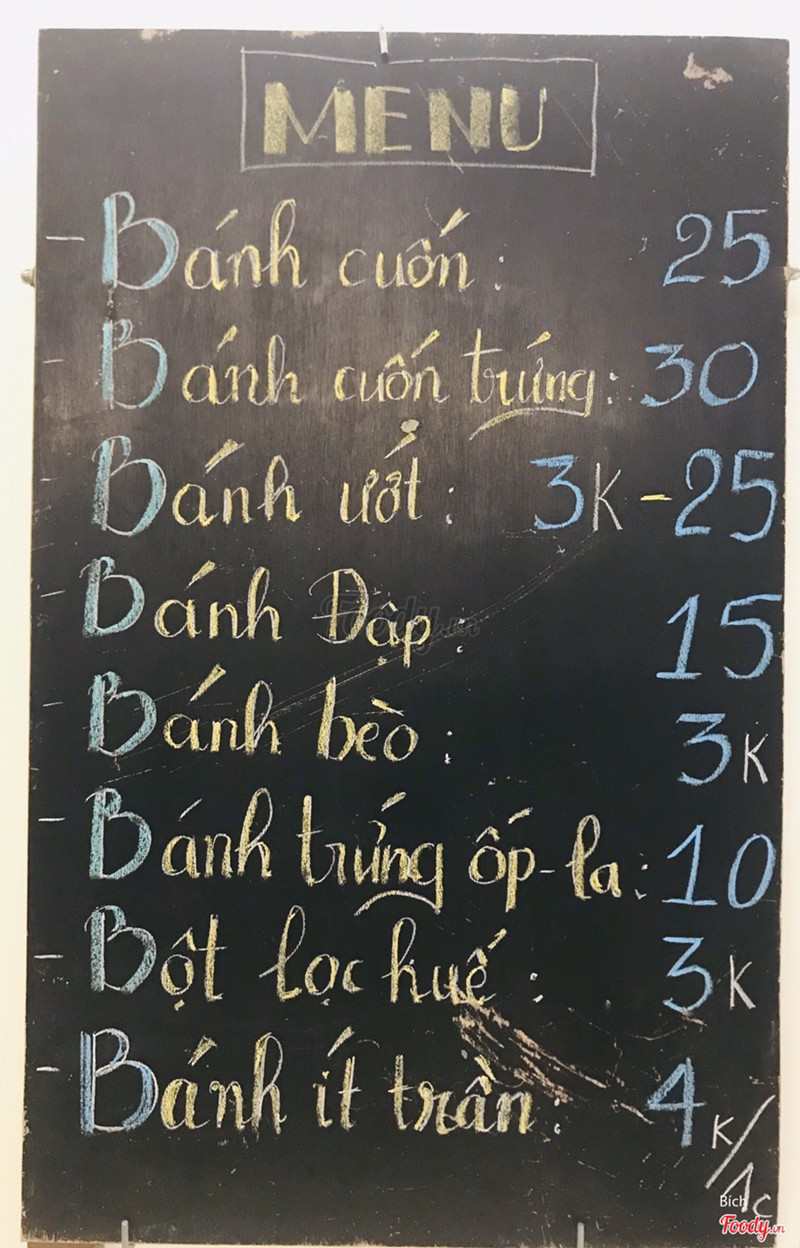 MENU
- Bánh cuốn: 25
- Bánh cuốn trứng: 30
- Bánh ướt: 3K - 25
- Bánh Đập: 15
- Bánh bèo: 3K
- Bánh trứng ốp-la: 10
- Bột lọc huế: 3K
- Bánh ít trần: 4K/1c
Foody.vn
Bích
Foody.vn